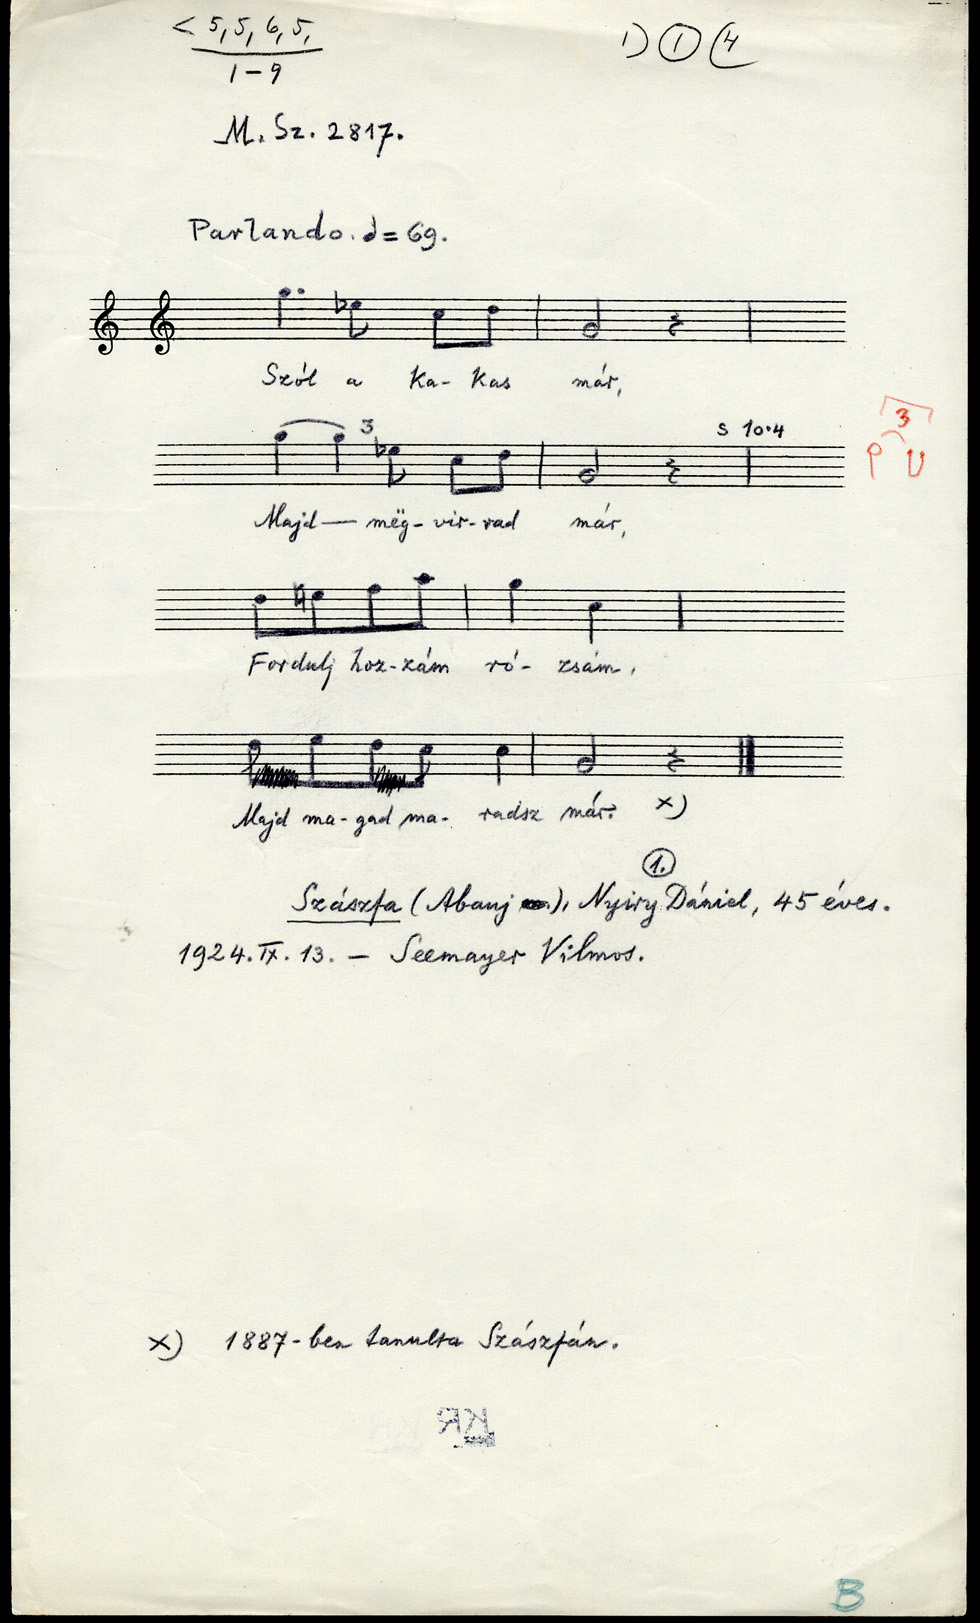 < 5, 5, 6, 5,
1 – 9
1) (1) (4
M. Sz. 2817.
Parlando. = 69.
Szól a ka- kas már,
3
s 10·4
3
Majd— mëg- vir- rad már,
Fordulj hoz-zám ró- zsám,
Majd ma- gad ma- radsz már. x)
1.
Szászfa (Abauj), Nyiry Dániel, 45 éves.
1924. IX. 13. — Seemayer Vilmos.
x) 1887-ben tanulta Szászfán.
KR
B